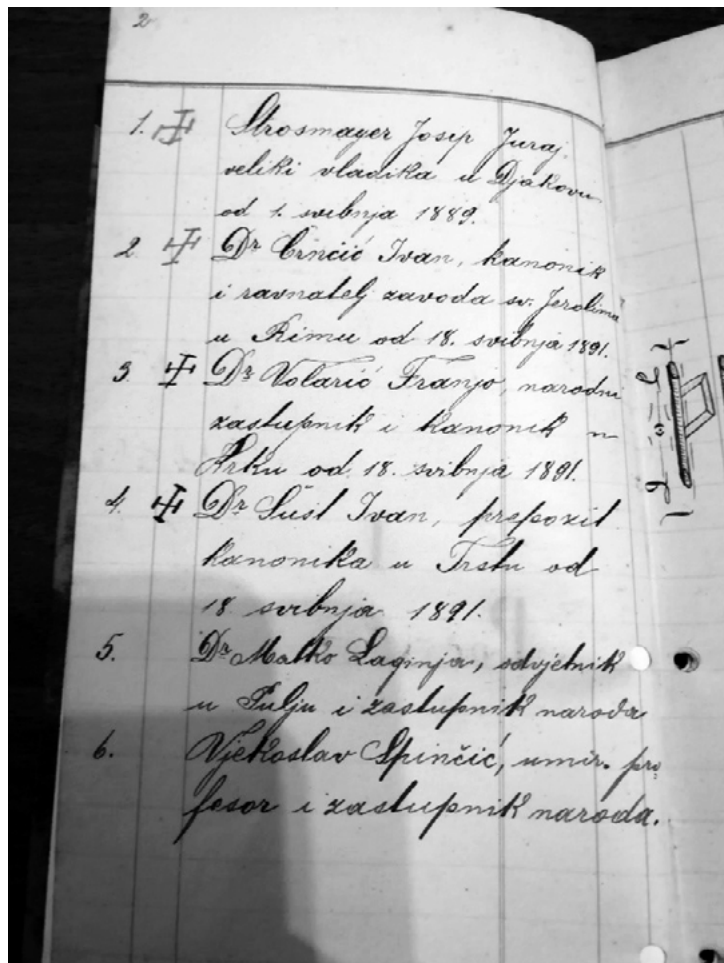 2
1. Strosmayer Josip Juraj,
veliki vladika u Djakovu
od 1. svibnja 1889.
2. Dr Crnčić Ivan, kanonik
i ravnatelj zavoda sv. Jerolima
u Rimu od 18. svibnja 1891.
3. Dr Volarić Franjo, narodni
zastupnik i kanonik u
Krku od 18. svibnja 1891.
4. Dr Šust Ivan, prepozit
kanonika u Trstu od
18 svibnja 1891.
5. Dr Matko Laginja, odvjetnik
u Pulju i zastupnik naroda
6. Vjekoslav Spinčić, umir. pro
fesor i zastupnik naroda.